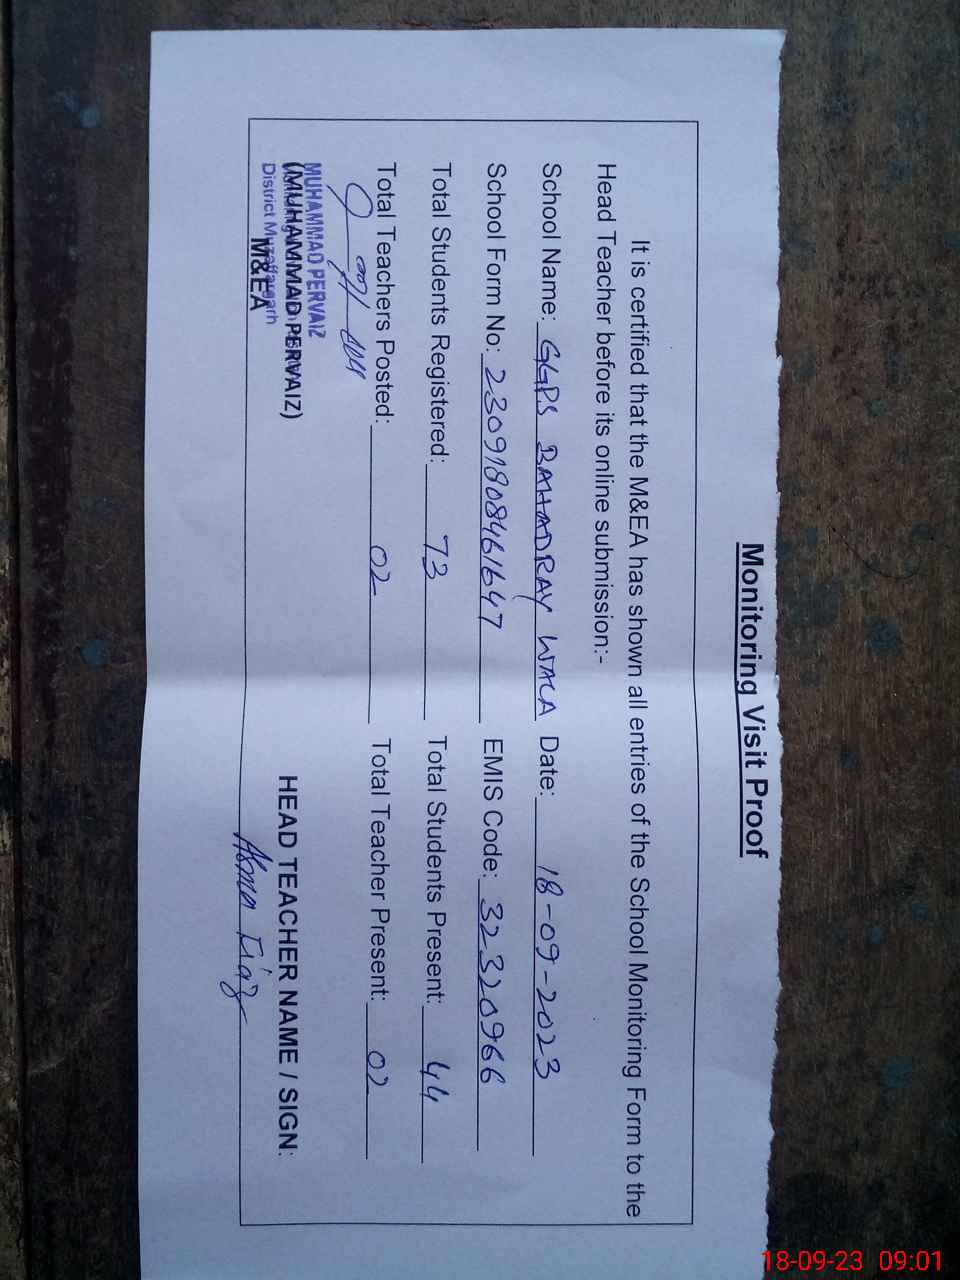 Monitoring Visit Proof
It is certified that the M&EA has shown all entries of the School Monitoring Form to the
Head Teacher before its online submission:-
School Name: GGPS BAHADRAY WALA Date: 18-09-2023
School Form No: 23091808461647 EMIS Code: 32320966
Total Students Registered: 73 Total Students Present: 44
Total Teachers Posted: 02 Total Teacher Present: 02
MUHAMMAD PERVAIZ
(MUHAMMAD PERVAIZ) HEAD TEACHER NAME / SIGN:
District Muzaffargarh
M&EA
18-09-23 09:01